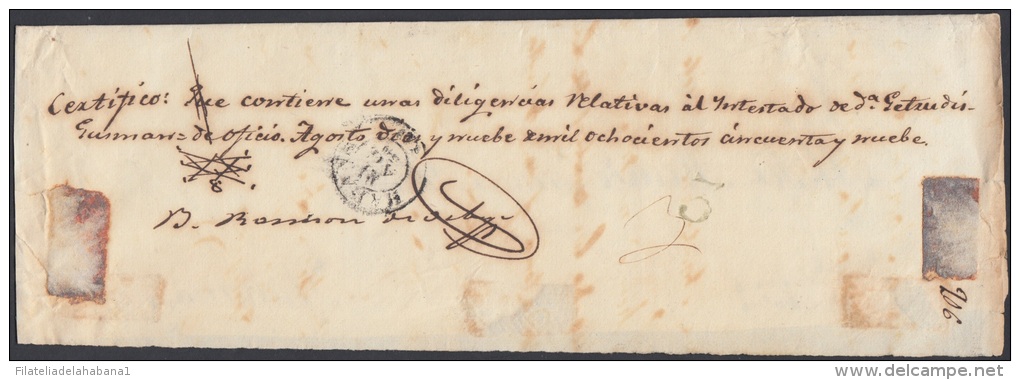 Certifico: Que contiene unas diligencias relativas al Intestado de da. Getrudis
Gusman= de oficio. Agosto dies y nuebe de mil ochocientos cincuenta y nuebe.
B. Ramon
HABANA
206
Filateliadelahabana1
delcampe.net